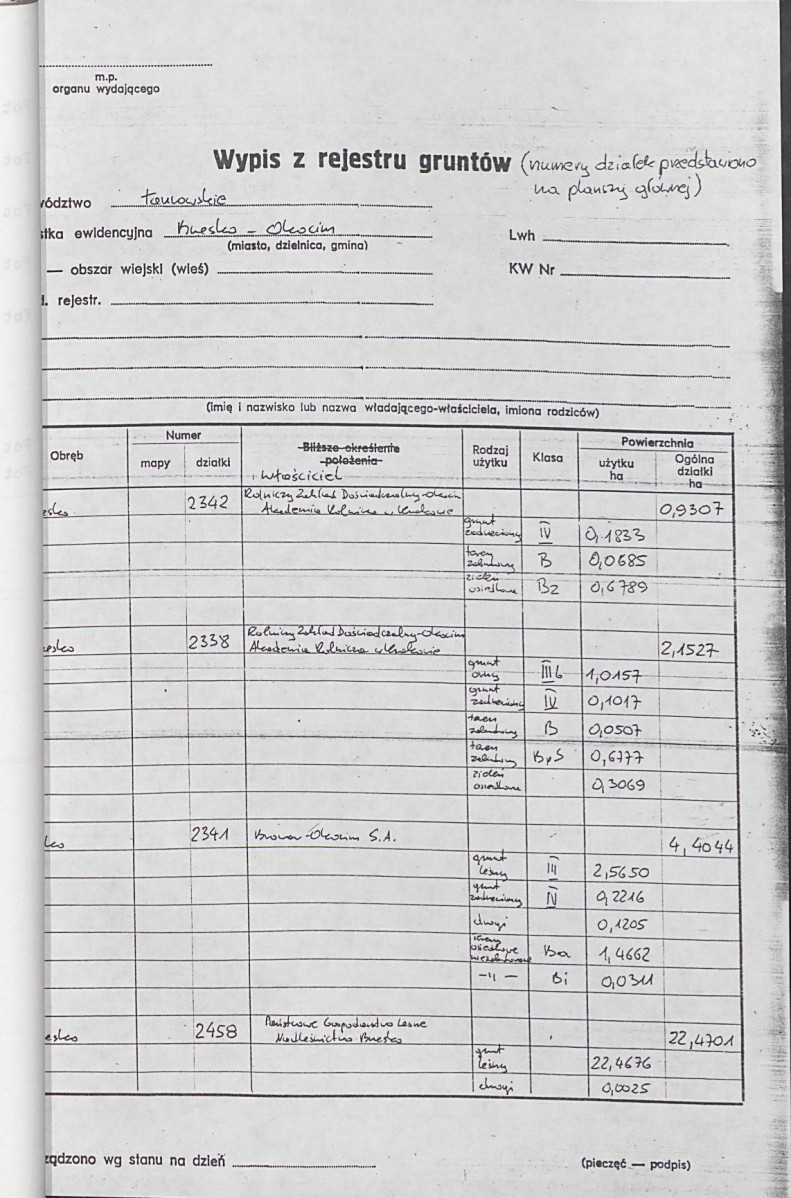 m.p.
organu wydającego
Wypis z rejestru gruntów (numery działek przedstawiono
na planszy głównej)
wództwo tarnowskie
stka ewidencyjna Brzesko - Okocim
(miasto, dzielnica, gmina)
Lwh
— obszar wiejski (wieś)
KW Nr
d. rejestr.
(imię i nazwisko lub nazwa władającego-właściciela, imiona rodziców)
Obręb Numer Bliższe określenie położenia Rodzaj użytku Klasa Powierzchnia
mapy działki właściciel użytku ha Ogólna działki ha
esko 2342 Rolniczy Zakład Doświadczalny-Okocim 0,9307
Akademia Rolnicza w Krakowie
grunt zadrzewiony IV 0,1833
tereny zabudowy B 0,0685
zieleń osiedlowa Bz 0,6789
esko 2338 Rolniczy Zakład Doświadczalny-Okocim 2,1527
Akademia Rolnicza w Krakowie
grunt orny IIIb 1,0157
grunt zadrzewiony IV 0,1017
teren zabudowy B 0,0507
teren zabudowy BpS 0,6777
zieleń osiedlowa 0,3069
ko 2341 Browar-Okocim S.A. 4,4044
grunt leśny III 2,5650
grunt zadrzewiony IV 0,2216
drogi 0,1205
tereny osiedlowe niezabudowane Ba 1,4662
-"- Bi 0,0311
esko 2458 Państwowe Gospodarstwo Leśne 22,4701
Nadleśnictwo Brzesko
grunt leśny 22,4676
drogi 0,0025
ządzono wg stanu na dzień
(pieczęć — podpis)